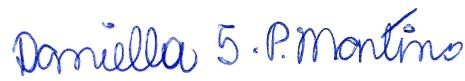 Daniella S. P. Martino